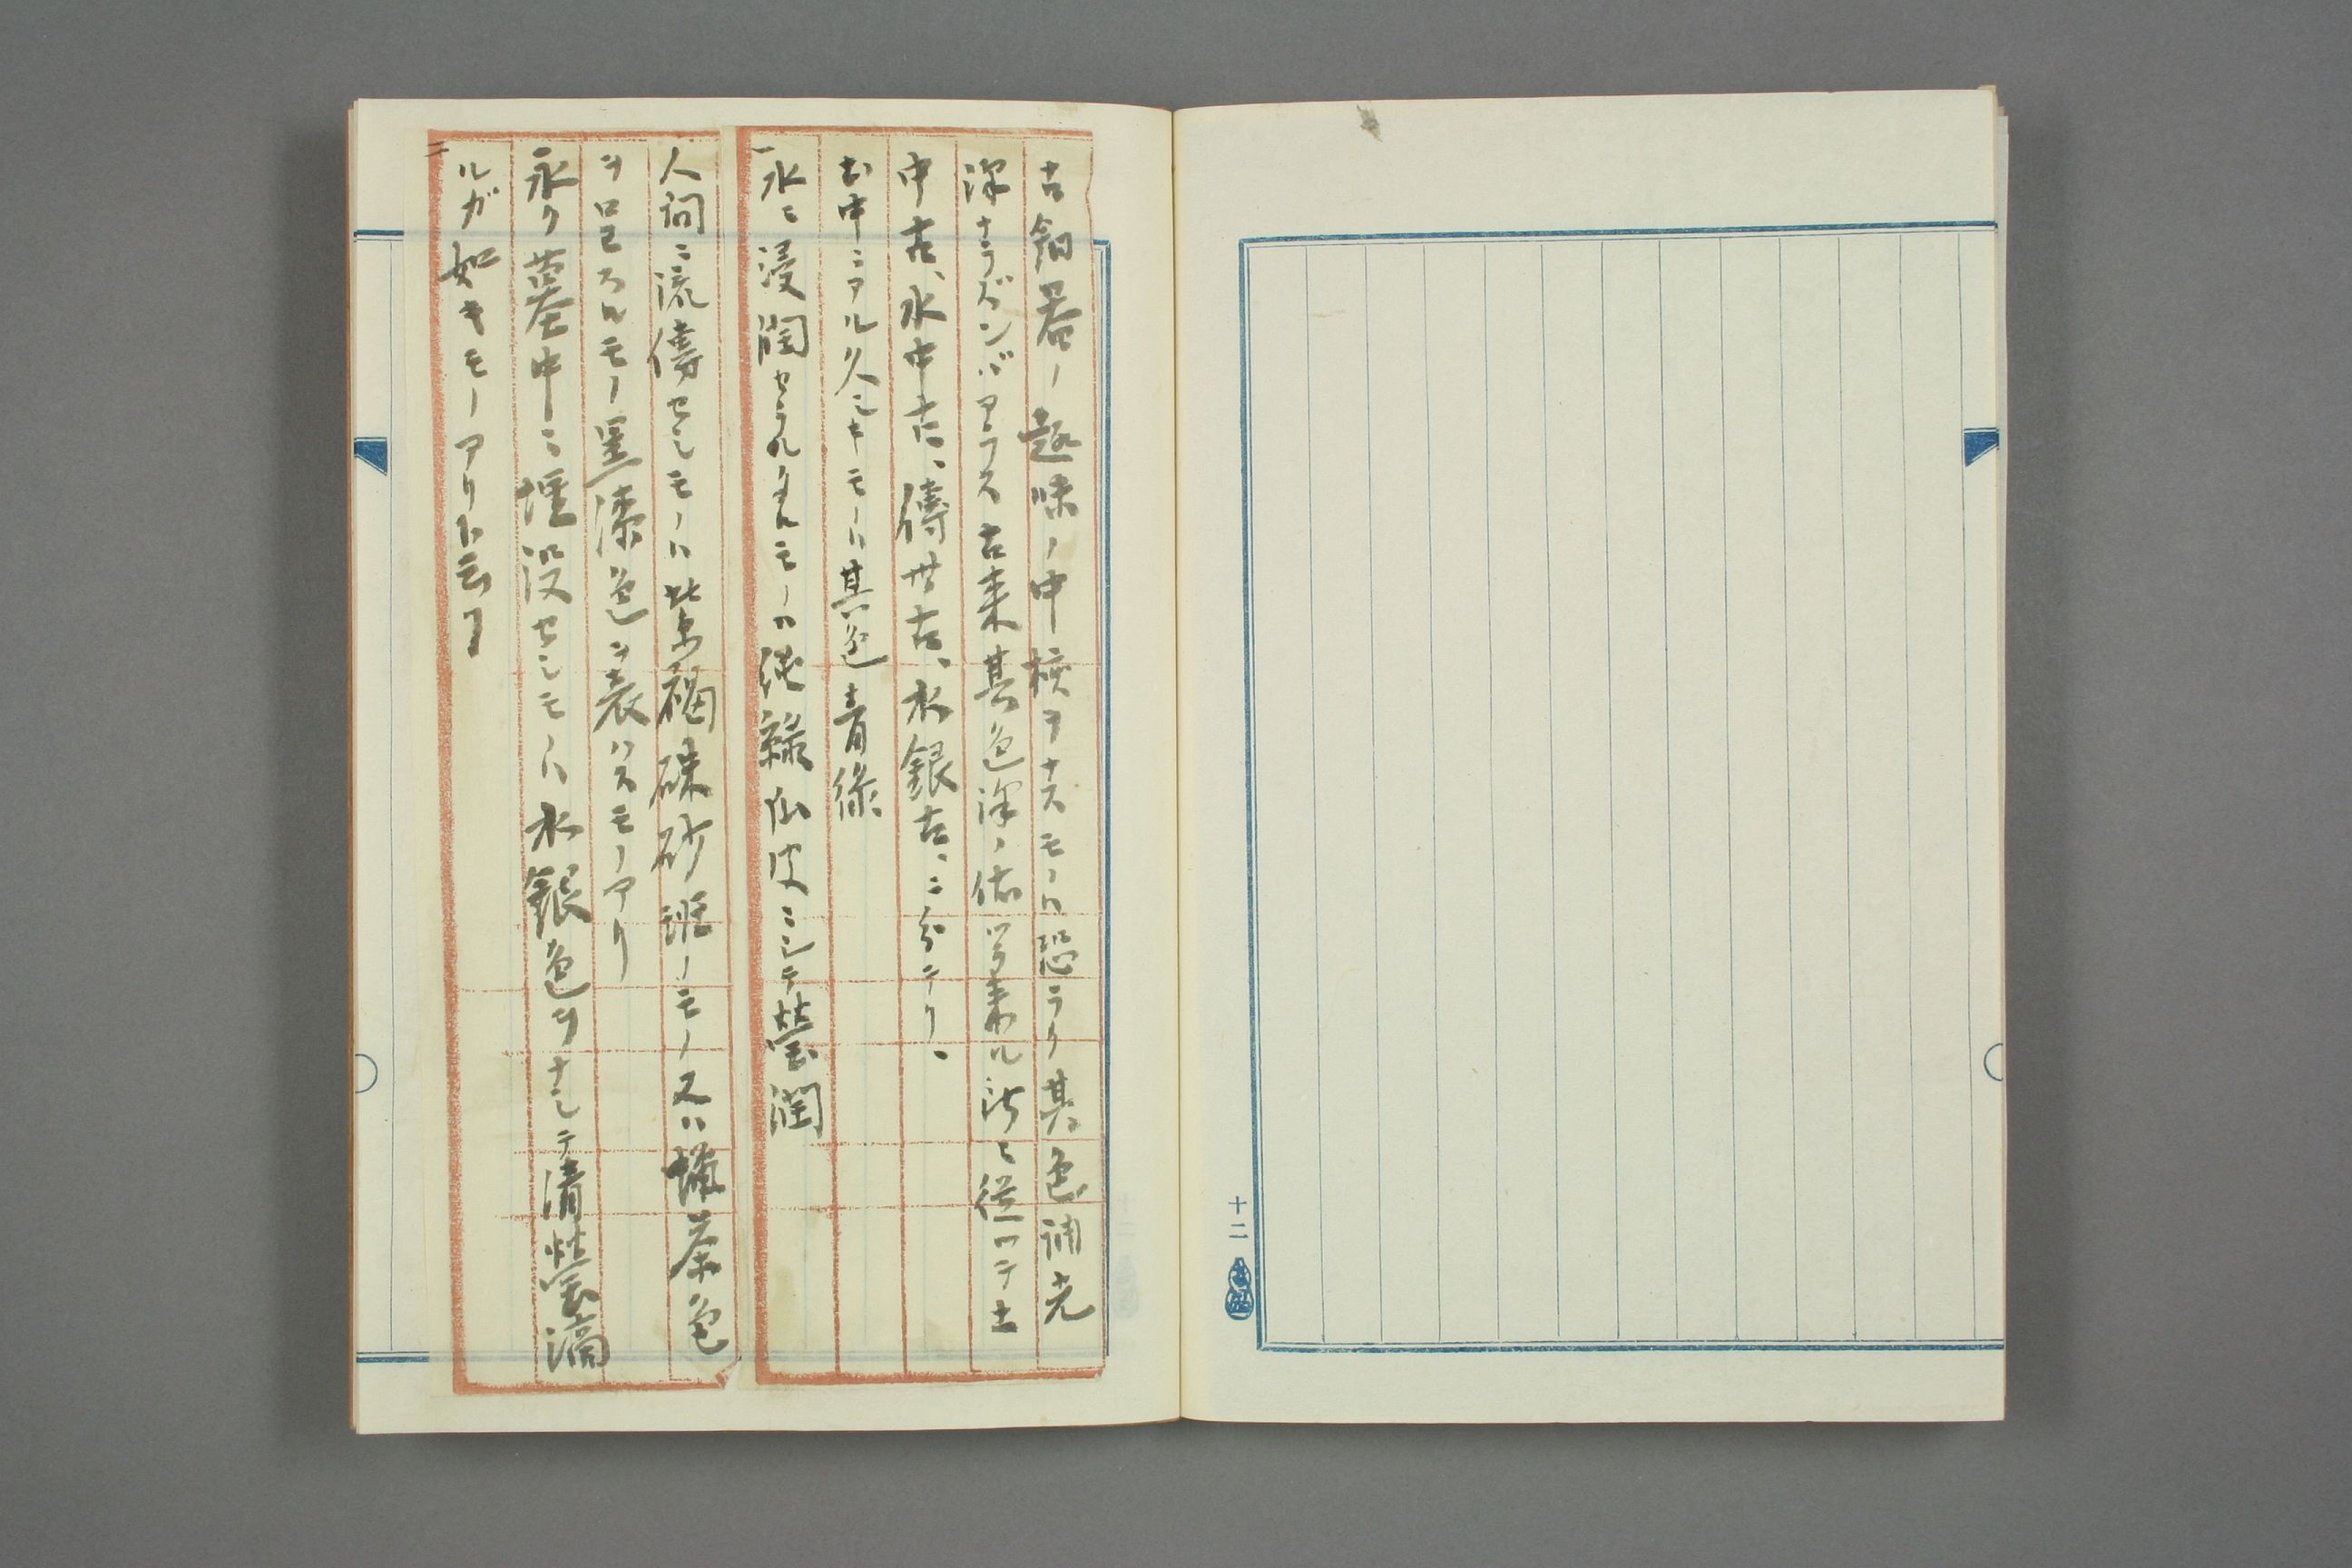 十二
古銅器ノ趣味ノ中核ヲナスモノハ恐ラク其色澤光
澤ナラズンバアラズ古来其色澤ノ依ツテ来ル所ニ從ツテ土
中古、水中古、傳世古、水銀古、ニ分テリ、
土中ニアル久シキモノハ其色青緑
一
水ニ浸潤セラレタルモノハ純緑瓜皮ニシテ瑩潤
人間ニ流傳セシモノハ紫褐硃砂斑ノモノ又ハ蠟茶色
ヲ呈スルモノ黒漆色ヲ表ハスモノアリ
永ク墓中ニ埋没セシモノハ水銀色ヲナシテ清瑩滴
ルガ如キモノアリト云フ
二